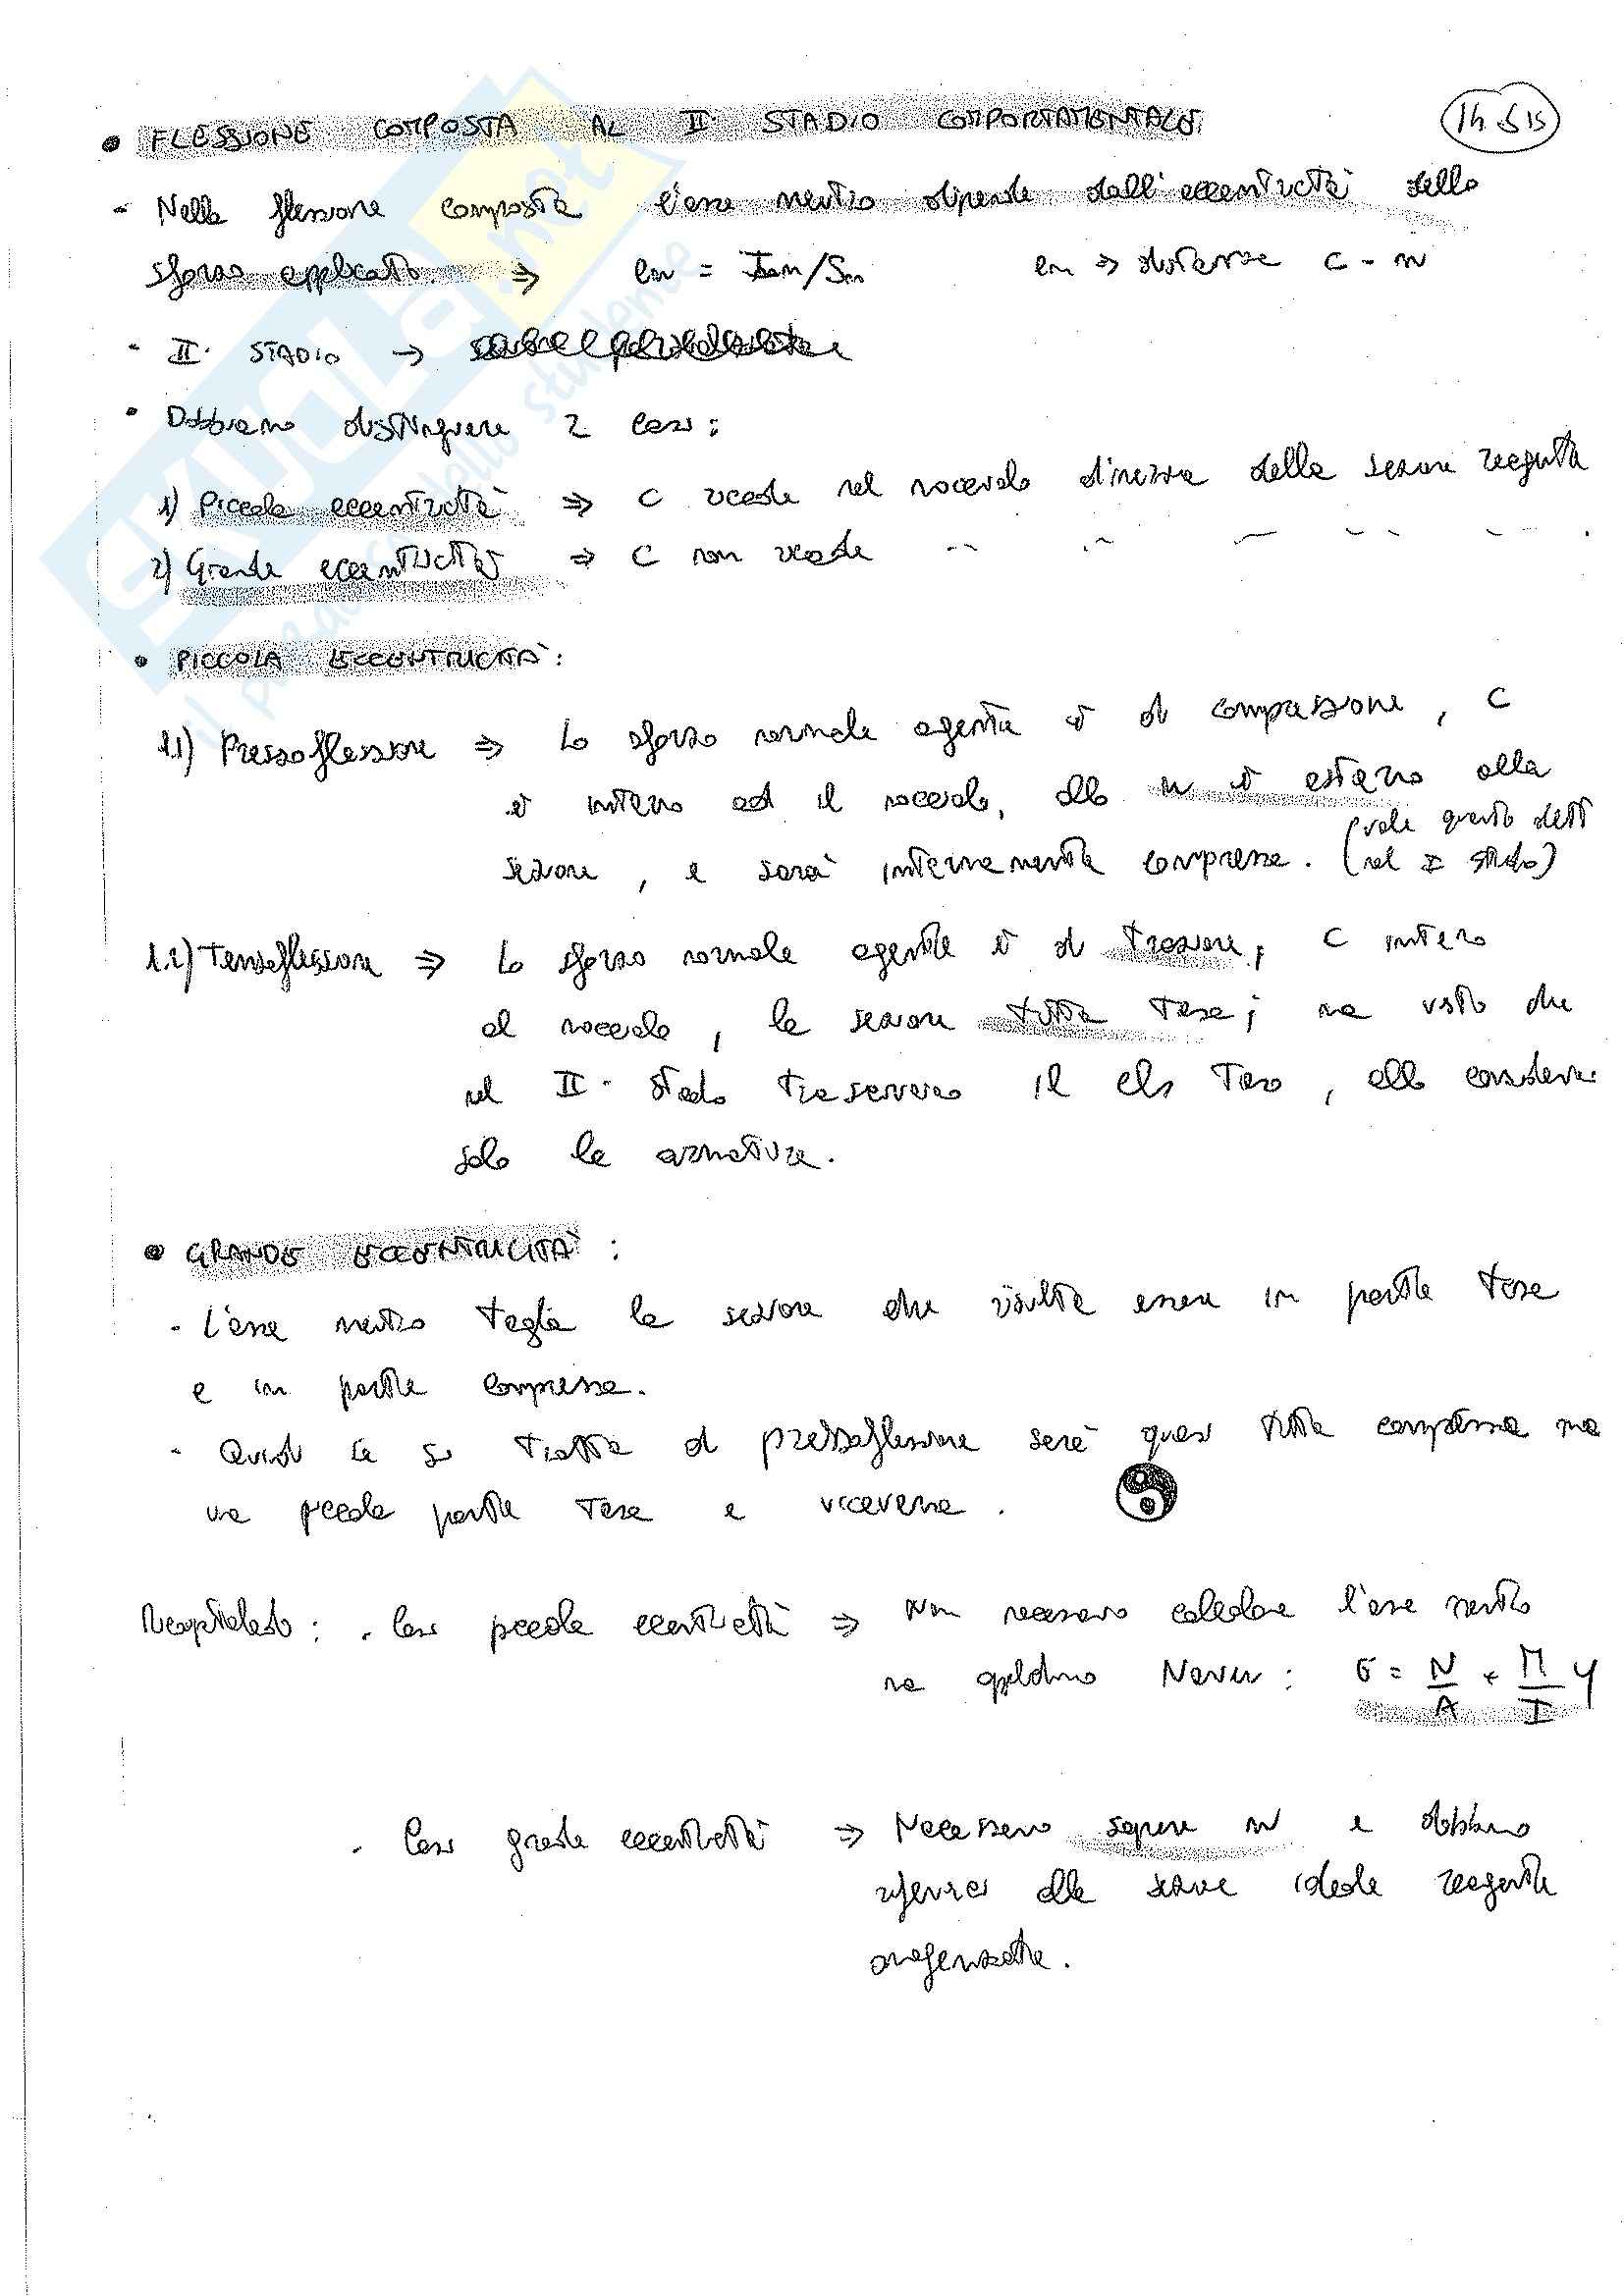 • FLESSIONE COMPOSTA AL II° STADIO COMPORTAMENTALE
- Nella flessione composta l'asse neutro dipende dall'eccentricità dello
sforzo applicato. ⇒ en = In/Sn en ⇒ distanza C - n
- II° STADIO →
• Dobbiamo distinguere 2 casi:
1) Piccola eccentricità ⇒ C ricade nel nocciolo d'inerzia della sezione reagente
2) Grande eccentricità ⇒ C non ricade " " " " "
• PICCOLA ECCENTRICITÀ:
1.1) Pressoflessione ⇒ Lo sforzo normale agente è di compressione, C
è interno ad il nocciolo, allo n è esterno alla
sezione, e sarà interamente compressa. (vale questo dett
(nel I stadio)
1.2) Tensoflessione ⇒ Lo sforzo normale agente è di trazione; C interno
al nocciolo, la sezione tutta tesa; ma visto che
nel II° stadio trascuriamo il cls teso, allo consideriamo
solo le armature.
• GRANDE ECCENTRICITÀ:
- L'asse neutro taglia la sezione che risulta essere in parte tesa
e in parte compressa.
- Quindi se si tratta di pressoflessione sarà quasi tutta compressa ma
una piccola parte tesa e viceversa.
Ricapitolando: . Caso piccola eccentricità ⇒ Non necessario calcolare l'asse neutro
ma applichiamo Navier: σ = N/A + M/I y
. Caso grande eccentricità ⇒ Necessario sapere n e dobbiamo
riferirci alla sezione ideale reagente
omogeneizzata.
14 515
il paradiso dello studente